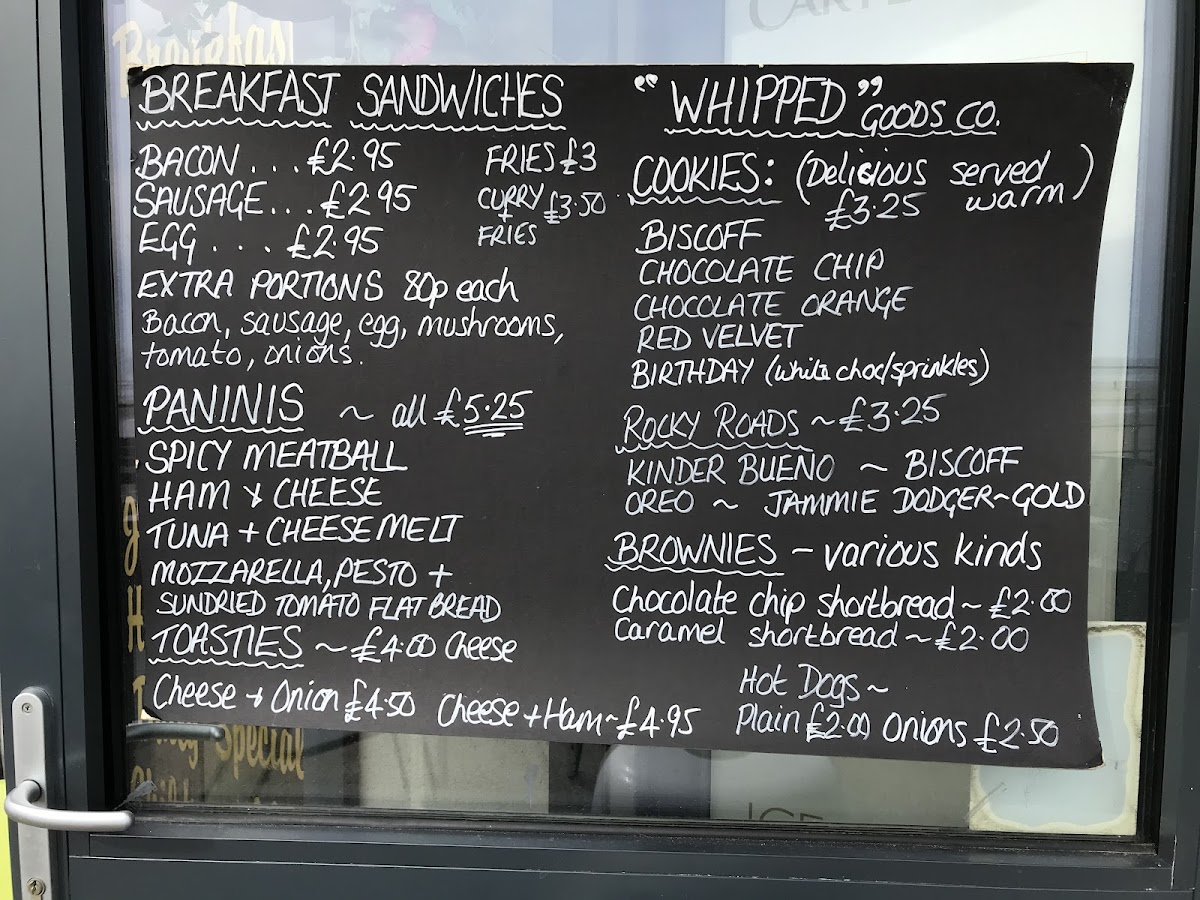 BREAKFAST SANDWICHES
BACON . . . £2.95
SAUSAGE... £2.95
EGG . . . . £2.95
FRIES £3
CURRY + FRIES £3.50
EXTRA PORTIONS 80p each
Bacon, sausage, egg, mushrooms,
tomato, onions.
PANINIS ~ all £5.25
SPICY MEATBALL
HAM + CHEESE
TUNA + CHEESE MELT
MOZZARELLA, PESTO +
SUNDRIED TOMATO FLATBREAD
TOASTIES ~ £4.00 Cheese
Cheese + Onion £4.50 Cheese + Ham ~ £4.95
"WHIPPED" GOODS CO.
COOKIES: (Delicious served warm)
£3.25
BISCOFF
CHOCOLATE CHIP
CHOCOLATE ORANGE
RED VELVET
BIRTHDAY (white choc/sprinkles)
ROCKY ROADS ~ £3.25
KINDER BUENO ~ BISCOFF
OREO ~ JAMMIE DODGER ~ GOLD
BROWNIES - various kinds
Chocolate chip shortbread ~ £2.00
Caramel shortbread ~ £2.00
Hot Dogs ~
Plain £2.00 Onions £2.50
Breakfast
Special